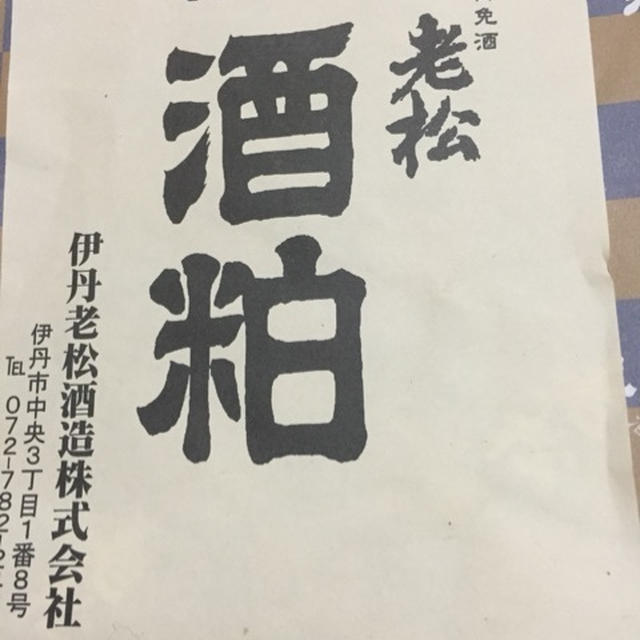 免酒
老松
酒粕
伊丹老松酒造株式会社
伊丹市中央3丁目1番8号
TEL 072-782-2